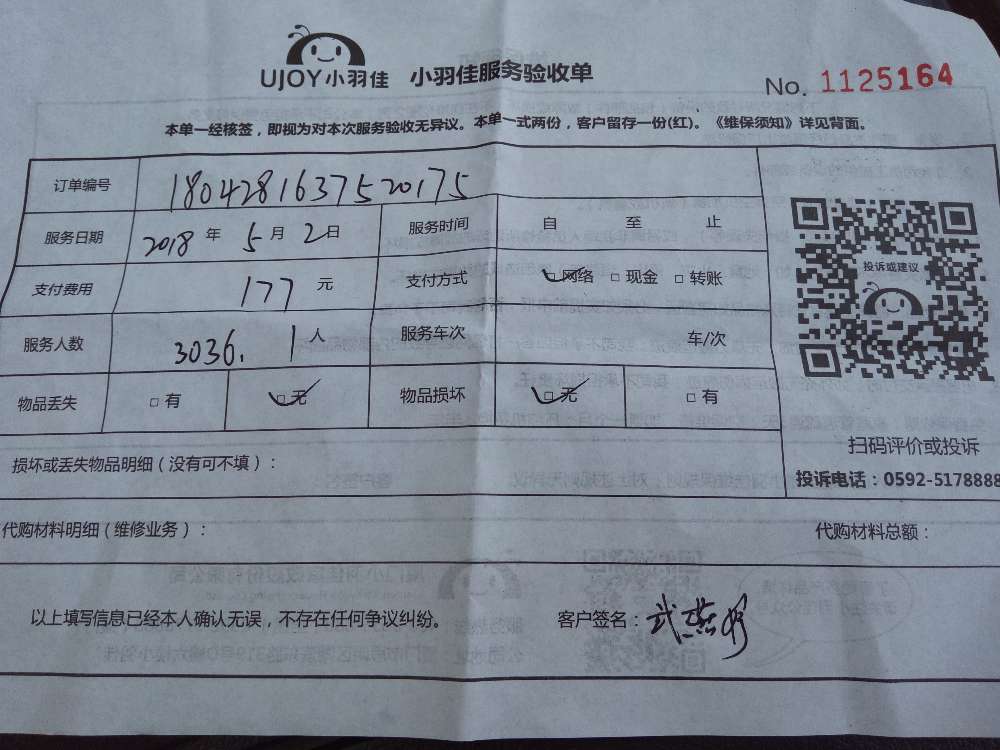 UJOY小羽佳 小羽佳服务验收单
No. 1125164
本单一经核签，即视为对本次服务验收无异议。本单一式两份，客户留存一份(红)。《维保须知》详见背面。
订单编号 1804281637520175
服务日期 2018 年 5 月 2 日 服务时间 自 至 止
支付费用 177 元 支付方式 □网络 □现金 □转账
服务人数 3036. 1 人 服务车次 车/次
物品丢失 □有 □无 物品损坏 □无 □有
投诉或建议
扫码评价或投诉
投诉电话：0592-5178888
损坏或丢失物品明细（没有可不填）：
代购材料明细（维修业务）： 代购材料总额：
以上填写信息已经本人确认无误，不存在任何争议纠纷。 客户签名：武燕